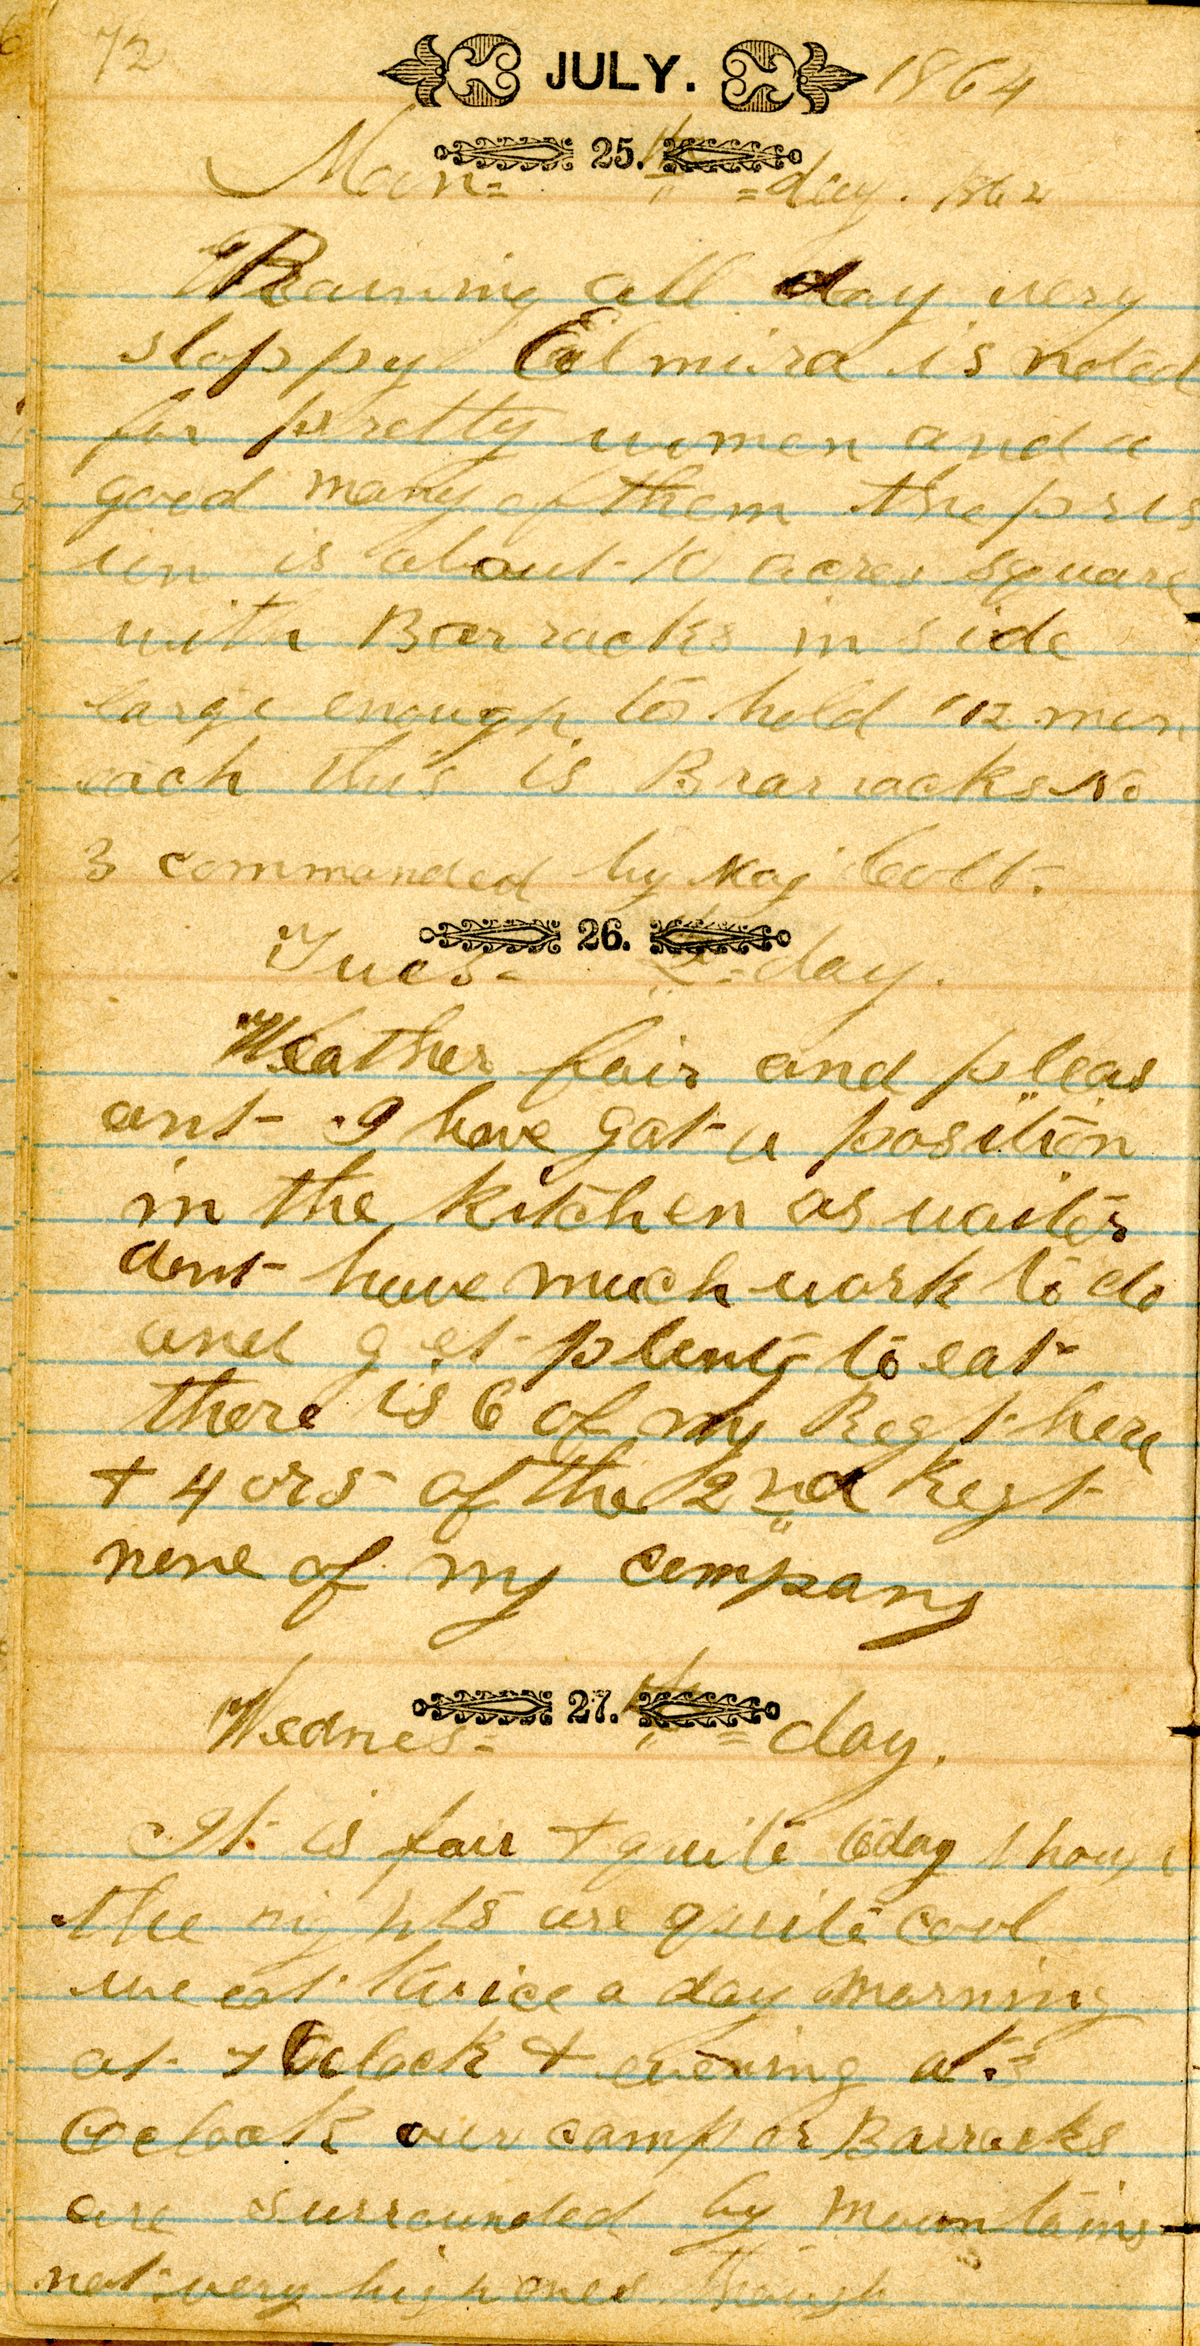 72 JULY. 1864
25. th
Mon= =day. 1864
Raining all day very
sloppy Elmira is noted
for pretty women and a
good many of them the pris
ion is about 10 acres square
with Barracks inside
large enough to hold 112 men
each this is Brarracks No
3 commanded by Maj Colt.
26.
Tues- =day.
Weather fair and pleas
ant I have got a position
in the kitchen as waiter
dont have much work to do
and get plenty to eat
there is 6 of my Regt here
+ 4 ors of the 2nd Regt
none of my company
27. th
Wednes= =day.
It is fair + quite today
the nights are quite cool
we eat twice a day morning
at 7 Oclock + evening at 3
Oclock our camp or Barracks
are surrounded by mountains
not very high ones though